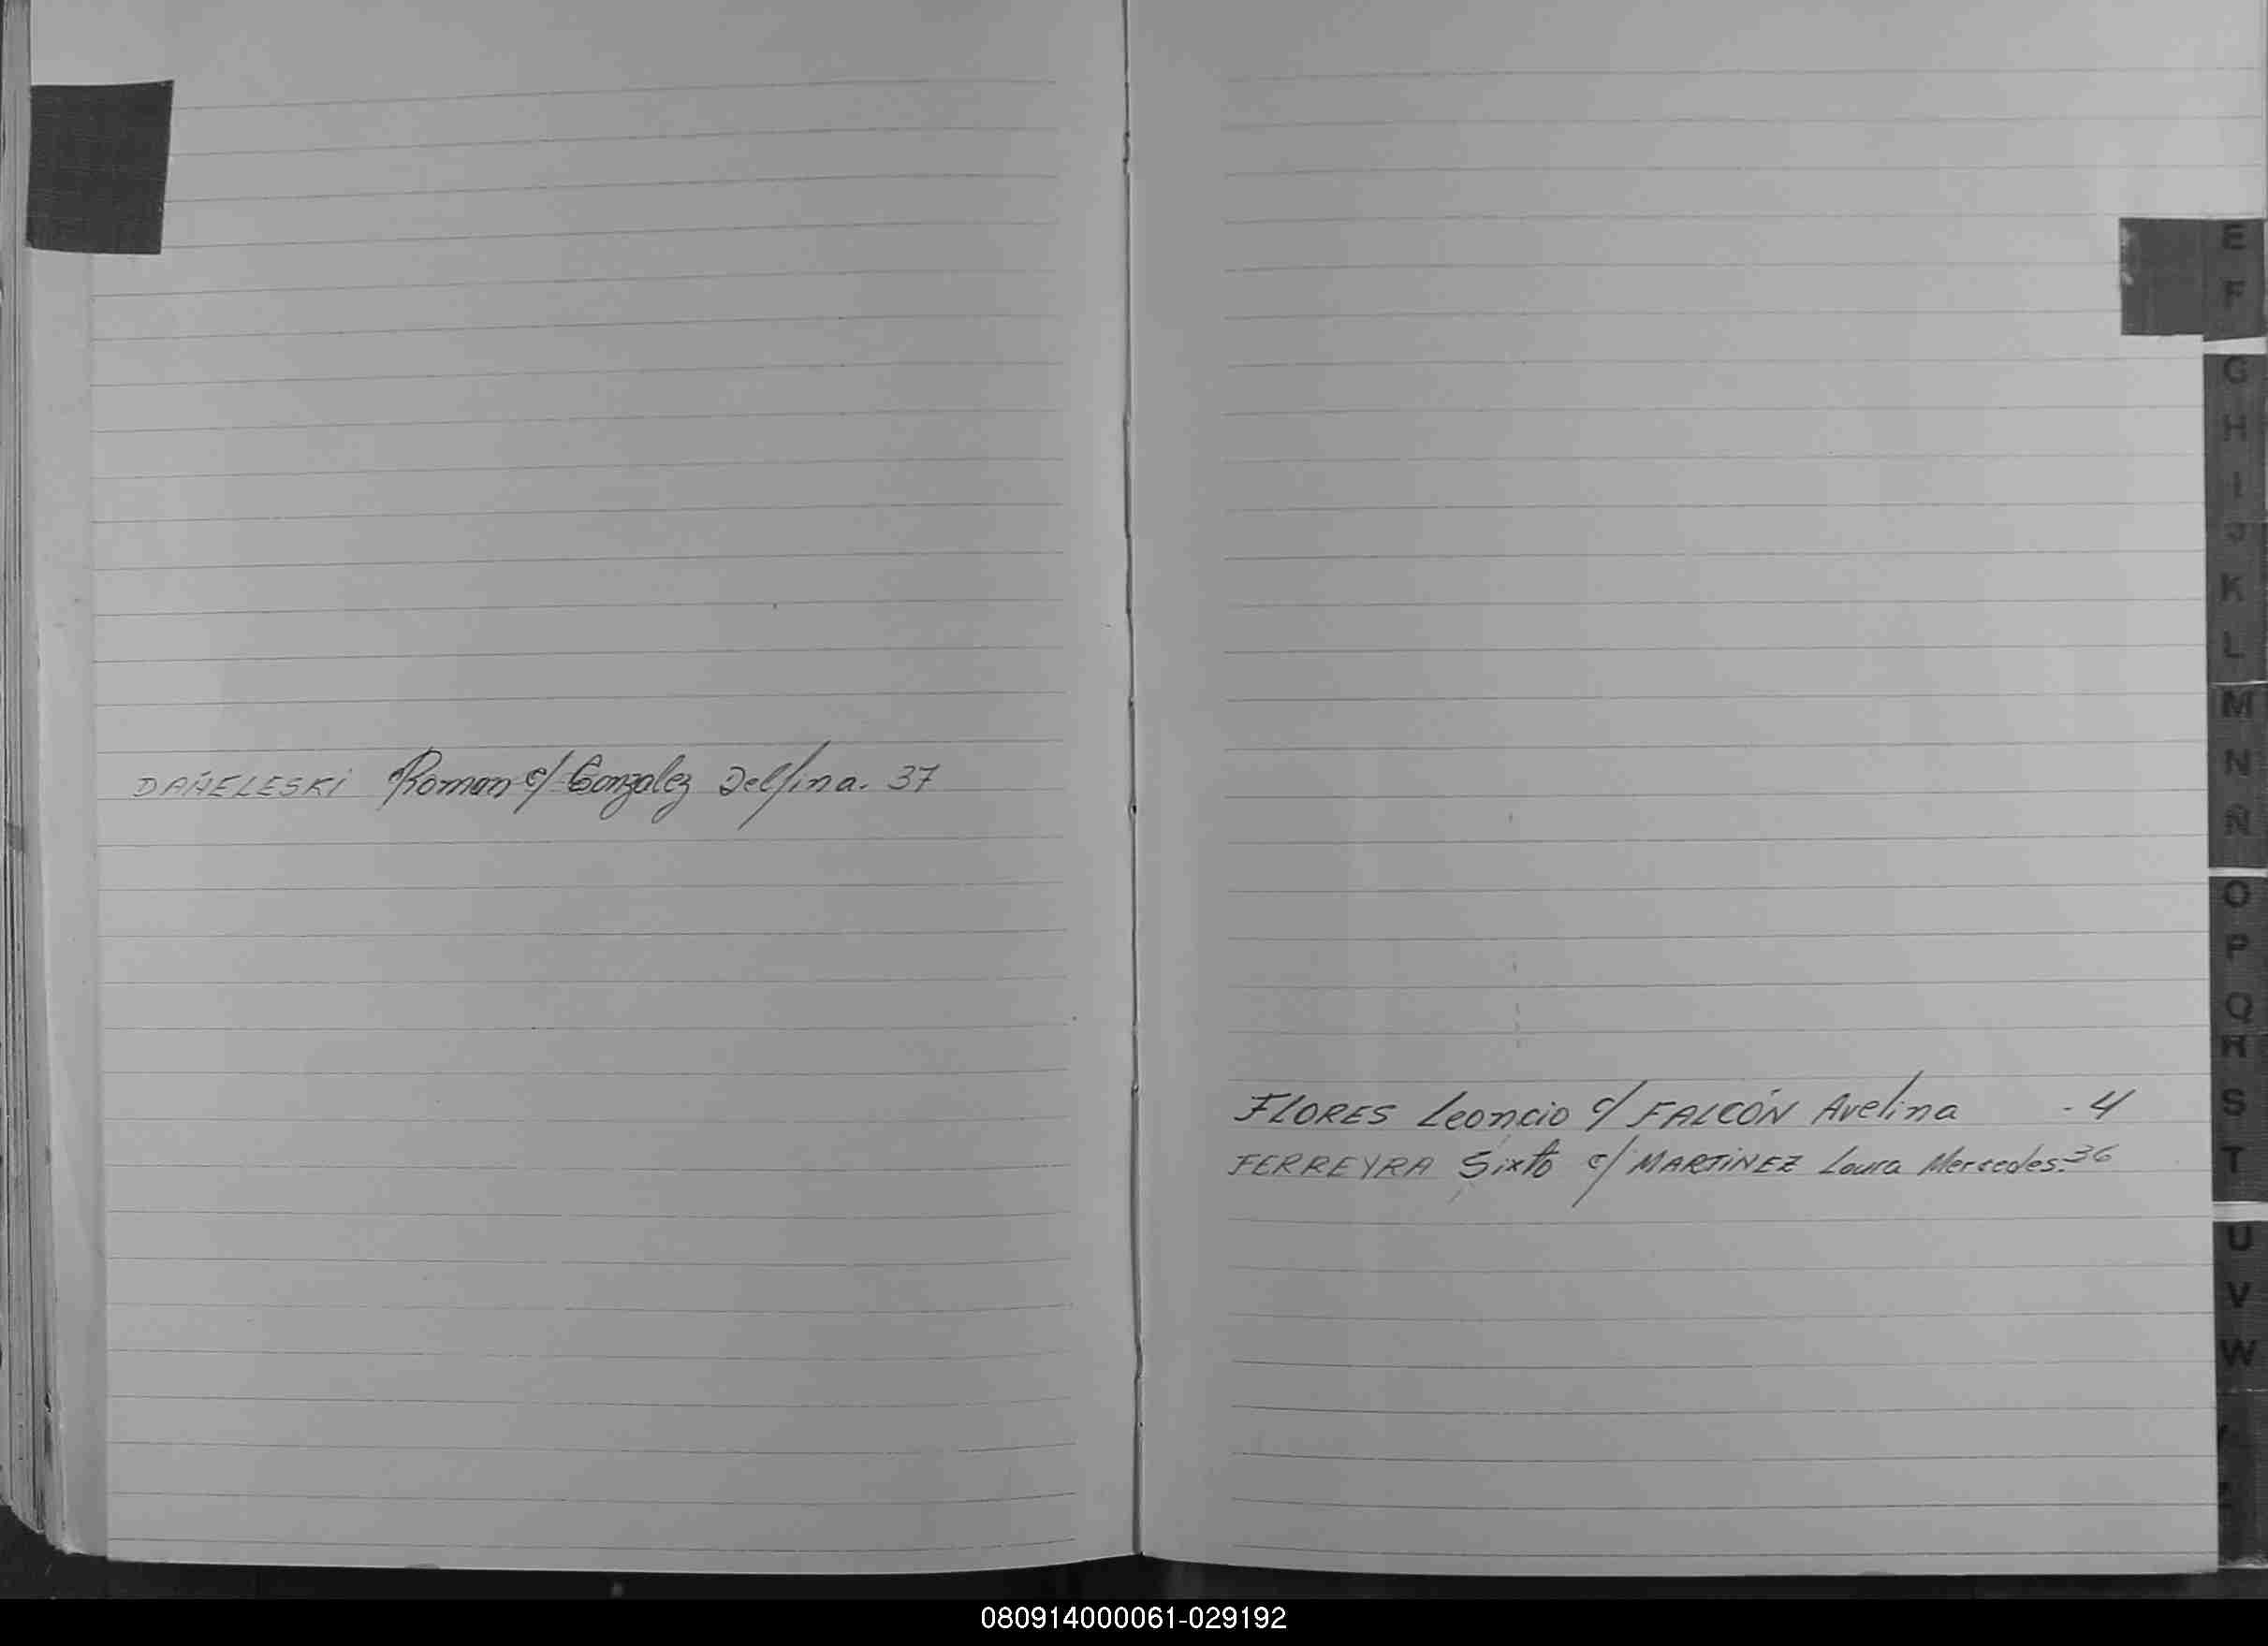 DAÑELESKI Roman c/ Gonzalez Delfina. 37
FLORES Leoncio c/ FALCÓN Avelina - 4
FERREYRA Sixto c/ MARTINEZ Laura Mercedes. 36
E
F
G
H
I
J
K
L
M
N
Ñ
O
P
Q
R
S
T
U
V
W
080914000061-029192